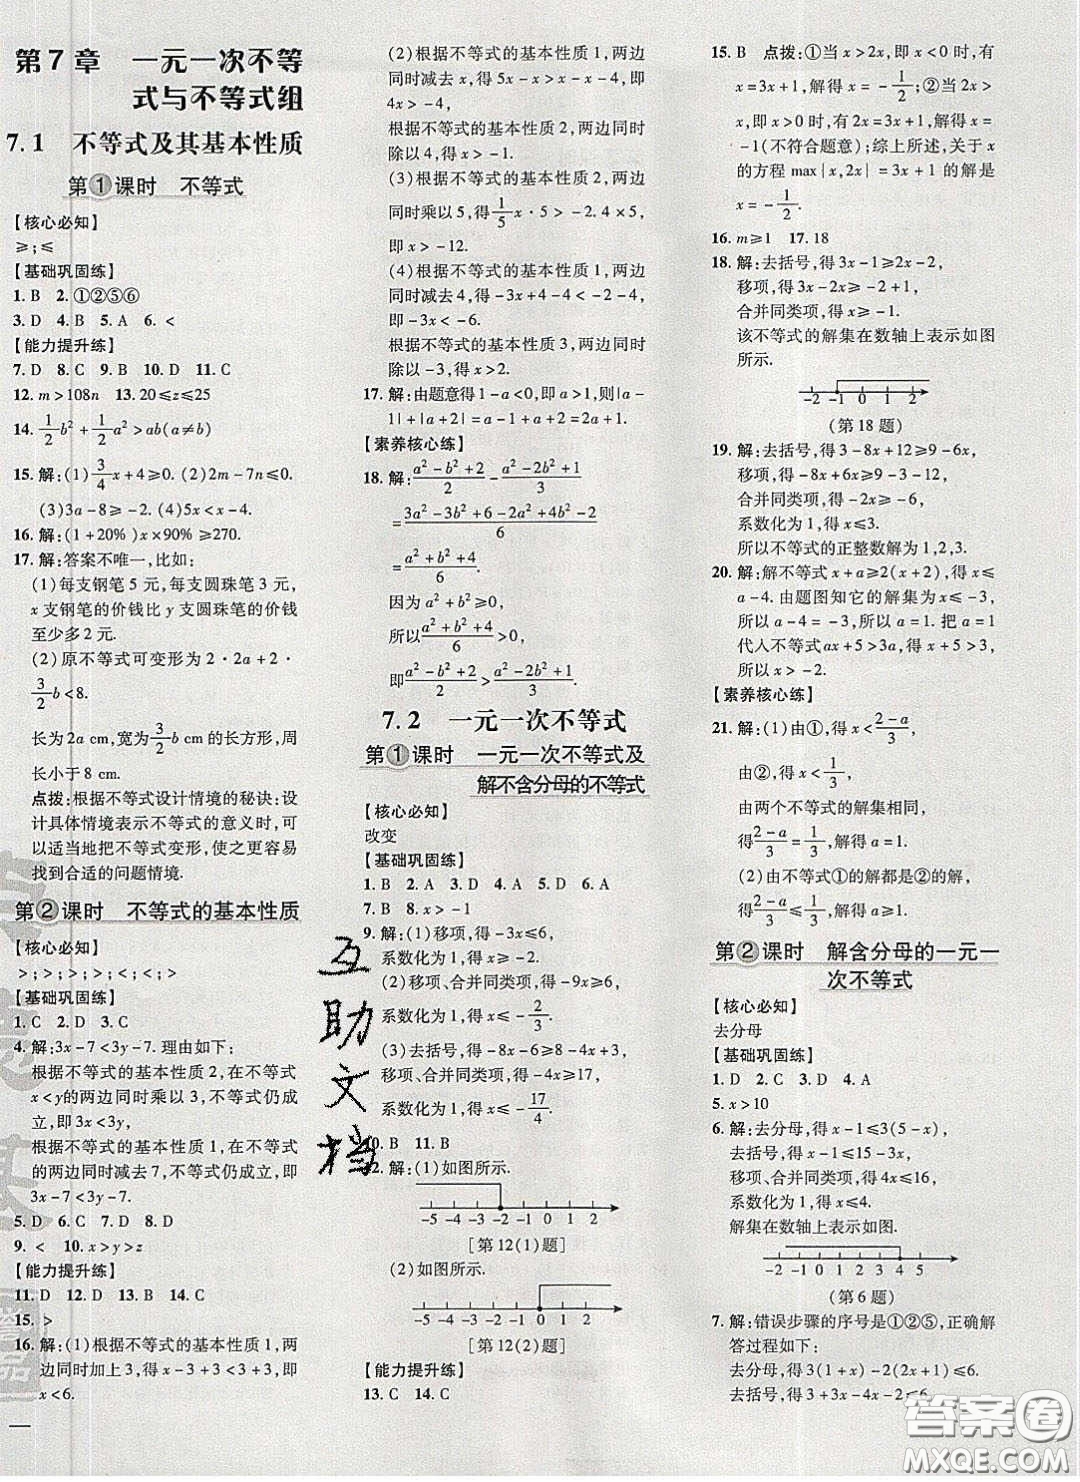 第7章 一元一次不等
式与不等式组
7.1 不等式及其基本性质
第①课时 不等式
【核心必知】
≥;≤
【基础巩固练】
1. B 2. ①②⑤⑥
3. D 4. B 5. A 6. <
【能力提升练】
7. D 8. C 9. B 10. D 11. C
12. m>108n 13. 20≤z≤25
14. 1/2 b²+1/2 a²>ab(a≠b)
15. 解:(1) 3/4 x+4≥0. (2)2m-7n≤0.
(3)3a-8≥-2. (4)5x<x-4.
16. 解:(1+20%)x×90%≥270.
17. 解:答案不唯一,比如:
(1)每支钢笔5元,每支圆珠笔3元,
x支钢笔的价钱比y支圆珠笔的价钱
至少多2元.
(2)原不等式可变形为2·2a+2·
3/2 b<8.
长为2a cm,宽为 3/2 b cm的长方形,周
长小于8 cm.
点拨:根据不等式设计情境的秘诀:设
计具体情境表示不等式的意义时,可
以适当地把不等式变形,使之更容易
找到合适的问题情境.
第②课时 不等式的基本性质
【核心必知】
>;>;>;>;<;<;>
【基础巩固练】
1. C 2. D 3. C
4. 解:3x-7<3y-7. 理由如下:
根据不等式的基本性质2,在不等式
x<y的两边同时乘以3,不等式仍成
立,即3x<3y,
根据不等式的基本性质1,在不等式
的两边同时减去7,不等式仍成立,即
3x-7<3y-7.
5. D 6. C 7. D 8. C
9. < 10. x>y>z
【能力提升练】
11. D 12. D 13. B 14. C
15. >
16. 解:(1)根据不等式的基本性质1,两
边同时加上3,得x-3+3<3+3,即
x<6.
(2)根据不等式的基本性质1,两边
同时减去x,得5x-x>x-x+8,即
4x>8.
根据不等式的基本性质2,两边同时
除以4,得x>2.
(3)根据不等式的基本性质2,两边
同时乘以5,得 1/5 x·5>-2.4×5,
即x>-12.
(4)根据不等式的基本性质1,两边
同时减去4,得4-3x-4<-2-4,
即-3x<-6.
根据不等式的基本性质3,两边同时
除以-3,得x>2.
17. 解:由题意得1-a<0,即a>1,则|a-
1|+|a+2|=a-1+a+2=2a+1.
【素养核心练】
18. 解: (a²-b²+2)/2 - (a²-2b²+1)/3
= (3a²-3b²+6-2a²+4b²-2)/6
= (a²+b²+4)/6.
因为a²+b²≥0,
所以 (a²+b²+4)/6 >0,
即 (a²-b²+2)/2 > (a²-2b²+1)/3.
7.2 一元一次不等式
第①课时 一元一次不等式及
解不含分母的不等式
【核心必知】
改变
【基础巩固练】
1. B 2. A 3. A 4. C 5. D 6. A
7. B 8. x>-1
9. 解:(1)移项,得-3x≤6,
系数化为1,得x≥-2.
(2)移项、合并同类项,得-9x≥6,
系数化为1,得x≤- 2/3.
(3)去括号,得-8x+8-4x≥9-8x,
移项、合并同类项,得-4x≥17,
系数化为1,得x≤- 17/4.
10. B 11. B
12. 解:(1)如图所示.
-5 -4 -3 -2 -1 0 1 2
[第12(1)题]
(2)如图所示.
-5 -4 -3 -2 -1 0 1 2
[第12(2)题]
【能力提升练】
13. C 14. C
15. B 点拨:①当x>2x,即x<0时,x
=3x+1,解得x=- 1/2;②当x<2x,
即x>0时,2x=3x+1,解得x=
-1(不符合题意);综上所述,关于x
的方程max|x,2x|=3x+1的解是
x=- 1/2.
16. m≥1 17. 18
18. 解:去括号,得3x-1≥2x-2,
移项,得3x-2x≥-2+1,
合并同类项,得x≥-1.
该不等式的解集在数轴上表示如图
所示.
-2 -1 0 1 2
(第18题)
19. 解:去括号,得3-8x+4≥9-6x,
移项,得-8x+6x≥9-3-4,
合并同类项,得-2x≥-6,
系数化为1,得x≤3.
所以不等式的正整数解为1,2,3.
20. 解:解不等式x+a≥2(x+2),得x≤
a-4. 由题图知它的解集为x≤-3,
所以a-4=-3,所以a=1. 把a=1
代入不等式ax+5>3a,得x+5>3,
所以x>-2.
【素养核心练】
21. 解:(1)由①,得x< (2-a)/3.
由②,得x< 1/3.
由两个不等式的解集相同,
得 (2-a)/3 = 1/3,解得a=1.
(2)由不等式①的解都是②的解,
得 (2-a)/3 ≤ 1/3,解得a≥1.
第②课时 解含分母的一元一
次不等式
【核心必知】
去分母
【基础巩固练】
1. D 2. A 3. C 4. D
5. x>10
6. 解:去分母,得x-1≤3(5-x),
去括号,得x-1≤15-3x,
移项、合并同类项,得4x≤16,
系数化为1,得x≤4.
解集在数轴上表示如图.
-2 -1 0 1 2 3 4 5
(第6题)
7. 解:错误步骤的序号是①②⑤,正确解
答过程如下:
去分母,得3(1+x)-2(2x+1)≤6,
去括号,得3+3x-4x-2≤6,
互助文档
答案圈
MXQE.COM